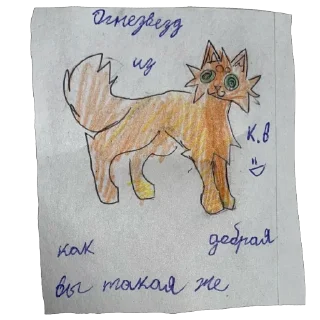 Огнезвезд
из
К.В
как добрая
вы такая же